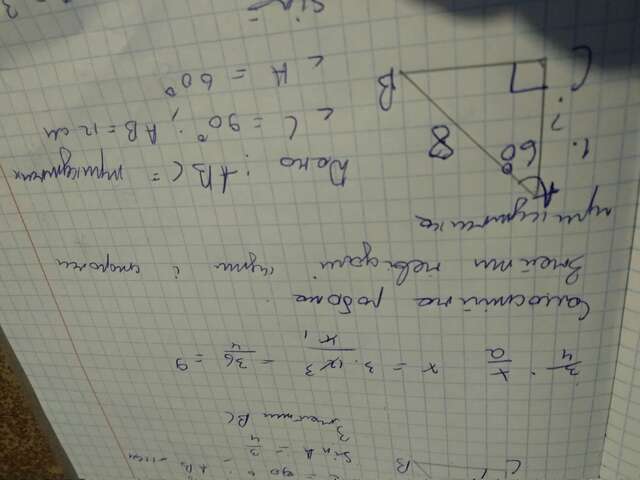 C B
C = 90° ; AB = 12см
Sin A = 3/4
Знайти BC
3/4 · x/a x = 3 · 12 3 / 4 1 = 36/4 = 9
Самостійна робота
Знайти невідомі кути і сторони
трикутника
A
1. 60° 8
?
C B
Дано : ABC = трикутник
∠ C = 90° ; AB = 12 см
∠ A = 60°
sin =
3